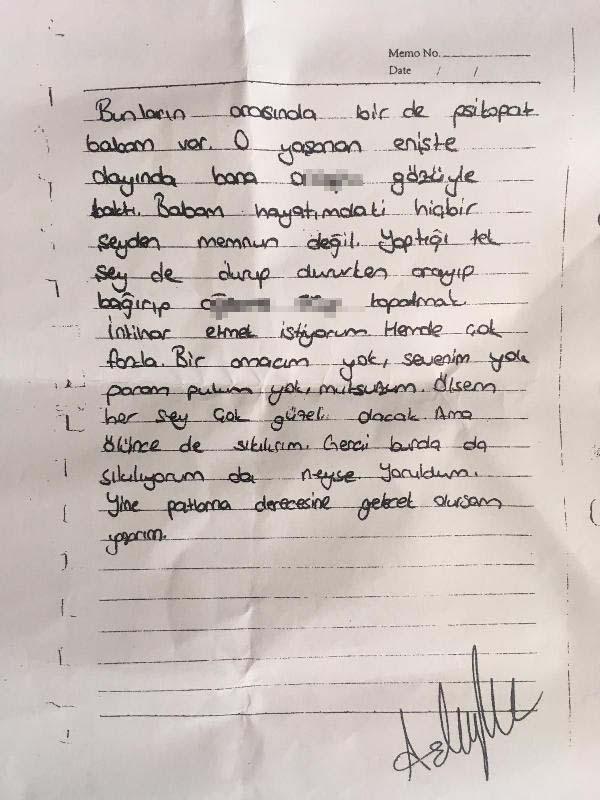 Memo No.
Date / /
Bunların arasında bir de psikopat
babam var. O yaşanan enişte
dayında bana gözüyle
baktı. Babam hayatımdaki hiçbir
şeyden memnun değil. Yaptığı tek
şey de durup dururken arayıp
bağırıp kapatmak
İntihar etmek istiyorum Hemde çok
fazla. Bir amacım yok, sevenim yok
param pulum yok, mutsuzum. Ölsem
her şey çok güzel olacak Ama
ölünce de sıkılırım. Gerçi burda da
sıkılıyorum da neyse Yoruldum.
Yine patlama derecesine gelecek olursam
yazarım.